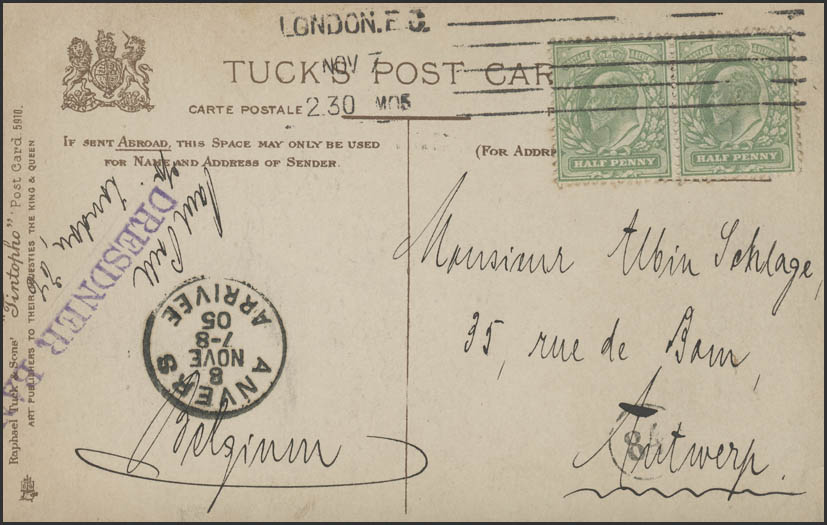 LONDON. E.C.
NOV 7
2.30 M05
TUCK'S POST CAR
CARTE POSTALE
IF SENT ABROAD, THIS SPACE MAY ONLY BE USED
FOR NAME AND ADDRESS OF SENDER.
(FOR ADDRE
HALF PENNY
HALF PENNY
Raphael Tuck & Sons' "Tintopho" Post Card 5910.
ART PUBLISHERS TO THEIR MAJESTIES THE KING & QUEEN
Paul
London, E.C.
DRESDNER
ANVERS
8
NOVE
7-8
05
ARRIVEE
Belgium
Monsieur Albin Schlage,
35, rue de Bom,
Antwerp.